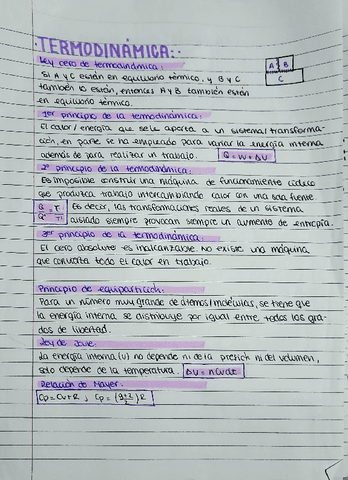 ·TERMODINÁMICA:·
Ley cero de termodinámica:
Si A y C están en equilibrio térmico, y B y C
también lo están, entonces A y B también están
en equilibrio térmico.
A B
C
1er principio de la termodinámica:
El calor/energía que se le aporta a un sistema/transforma-
ción, en parte se ha empleado para variar la energía interna
además de para realizar un trabajo. Q = W + ΔU
2º principio de la termodinámica:
Es imposible construir una máquina de funcionamiento cíclico
que produzca trabajo intercambiando calor con una sola fuente.
Es decir, las transformaciones reales de un sistema
aislado siempre provocan siempre un aumento de entropía.
3er principio de la termodinámica:
El cero absoluto es inalcanzable. No existe una máquina
que convierta todo el calor en trabajo.
Principio de equipartición:
Para un número muy grande de átomos/moléculas, se tiene que
la energía interna se distribuye por igual entre todos los gra-
dos de libertad.
Ley de Joule:
La energía interna (U) no depende ni de la presión ni del volumen,
solo depende de la temperatura.
Relación de Mayer:
Cp = Cv + R